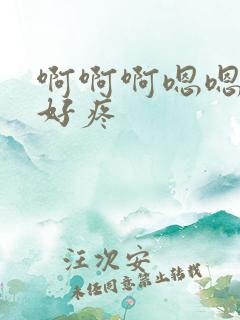 啊啊啊嗯嗯
好疼
汪次安
未经同意禁止转载